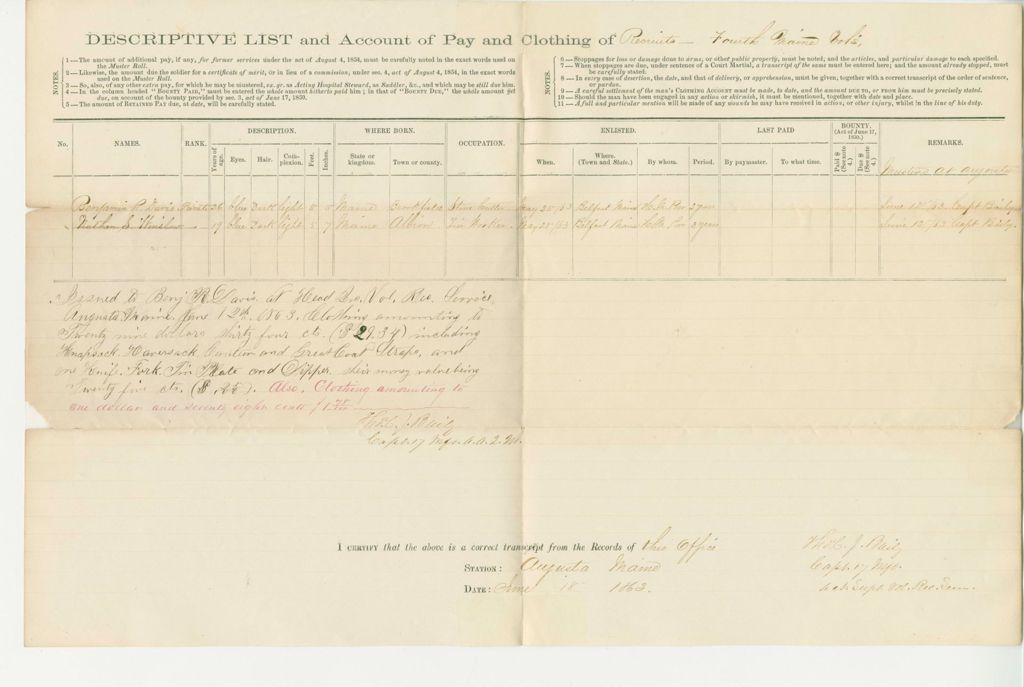 DESCRIPTIVE LIST and Account of Pay and Clothing of Recruits — Fourth Maine Vols,
NOTES.
1—The amount of additional pay, if any, for former services under the act of August 4, 1854, must be carefully noted in the exact words used on
the Muster Roll.
2—Likewise, the amount due the soldier for a certificate of merit, or in lieu of a commission, under sec. 4, act of August 4, 1854, in the exact words
used on the Muster Roll.
3—So, also, of any other extra pay, for which he may be mustered, ex. gr. as Acting Hospital Steward, as Saddler, &c., and which may be still due him.
4—In the column headed "BOUNTY PAID," must be entered the whole amount hitherto paid him; in that of "BOUNTY DUE," the whole amount yet
due, on account of the bounty provided by sec. 3, act of June 17, 1850.
5—The amount of RETAINED PAY due, at date, will be carefully stated.
NOTES.
6—Stoppages for loss or damage done to arms, or other public property, must be noted, and the articles, and particular damage to each specified.
7—When stoppages are due, under sentence of a Court Martial, a transcript of the same must be entered here; and the amount already stopped, must
be carefully stated.
8—In every case of desertion, the date, and that of delivery, or apprehension, must be given, together with a correct transcript of the order of sentence,
or pardon.
9—A careful settlement of the man's CLOTHING ACCOUNT must be made, to date, and the amount DUE TO, or FROM him must be precisely stated.
10—Should the man have been engaged in any action or skirmish, it must be mentioned, together with date and place.
11—A full and particular mention will be made of any wounds he may have received in action, or other injury, whilst in the line of his duty.
No. NAMES. RANK. DESCRIPTION. WHERE BORN. OCCUPATION. ENLISTED. LAST PAID BOUNTY. (Act of June 17, 1850.) REMARKS.
Years of age. Eyes. Hair. Complexion. Feet. Inches. State or kingdom. Town or county. When. Where. (Town and State.) By whom. Period. By paymaster. To what time. Paid $ (See note 4.) Due $ (See note 4.)
Mustered at Augusta
Benjamin R Davis Private 36 blue Dark light 5 Maine Stone Cutter May 25/63 Belfast Maine 3 years June 12/63 Capt Baily
S. Winslow 19 blue Dark light 5 7 Maine Albion Tin Worker May 28/63 Belfast Maine 3 years June 12/63 Capt Baily
Issued to Benj R. Davis at Head Qrs, Vol, Rec. Service,
Augusta Maine, June 12th 1863. Clothing amounting to
Twenty nine dollars thirty four cts. ($29.34) including
Knapsack, Haversack, Canteen and Great Coat Straps, and
one Knife, Fork, Tin Plate and Dipper, their money value being
Twenty five cts. ($ .25). Also, Clothing amounting to
one dollar and seventy eight cents
Thos. J. Baily
Capt. 17 Inf.
I CERTIFY that the above is a correct transcript from the Records of this Office
STATION: Augusta Maine
DATE: June 18 1863.
Thos. J. Baily
Capt. 17 Inf.
Supt. Vol. Rec. Serv.